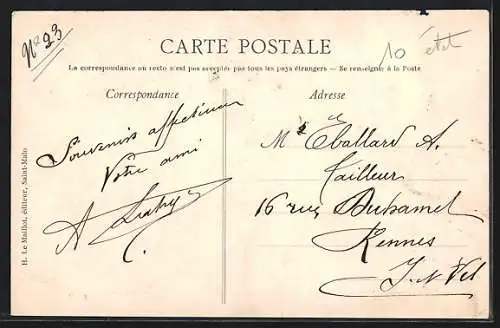 Nº 23
10 état
CARTE POSTALE
La correspondance au recto n'est pas acceptée par tous les pays étrangers — Se renseigner à la Poste
Correspondance
Souvenirs affectueux
Votre ami
A
Adresse
Mr Eballard A.
Tailleur
16 rue Duhamel
Rennes
I-et-Vil
H. Le Maillot, éditeur, Saint-Malo